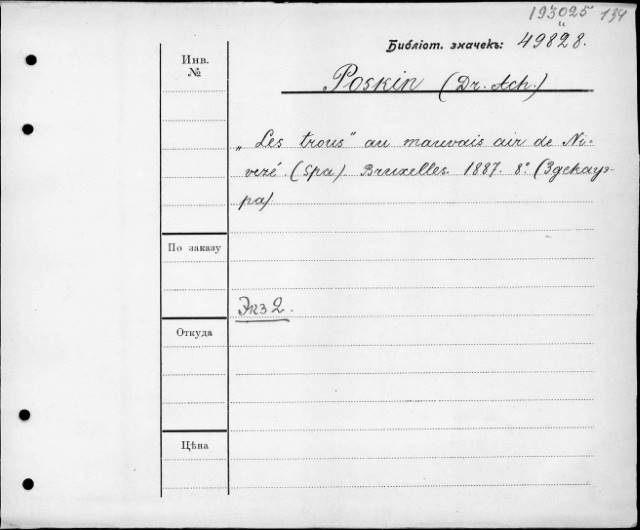 193025 134
"
Библіот. значекъ: 49828.
Инв.
№
Poskin (Dr. Ach.)
„Les trous" au mauvais air de Ni-
vezé. (Spa). Bruxelles. 1887. 8°. (Эдскау-
ра).
По заказу
Экз 2.
Откуда
Цѣна